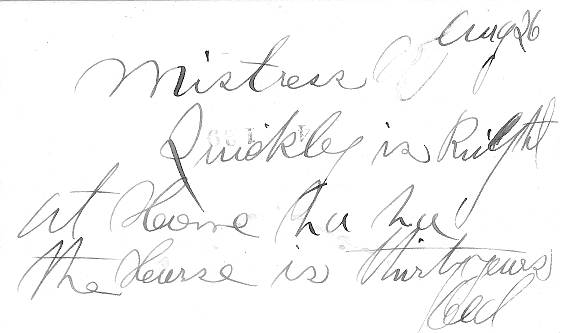 Aug 26
Mistress
Quickly is Right
at Home ha ha
The Horse is thirty yours